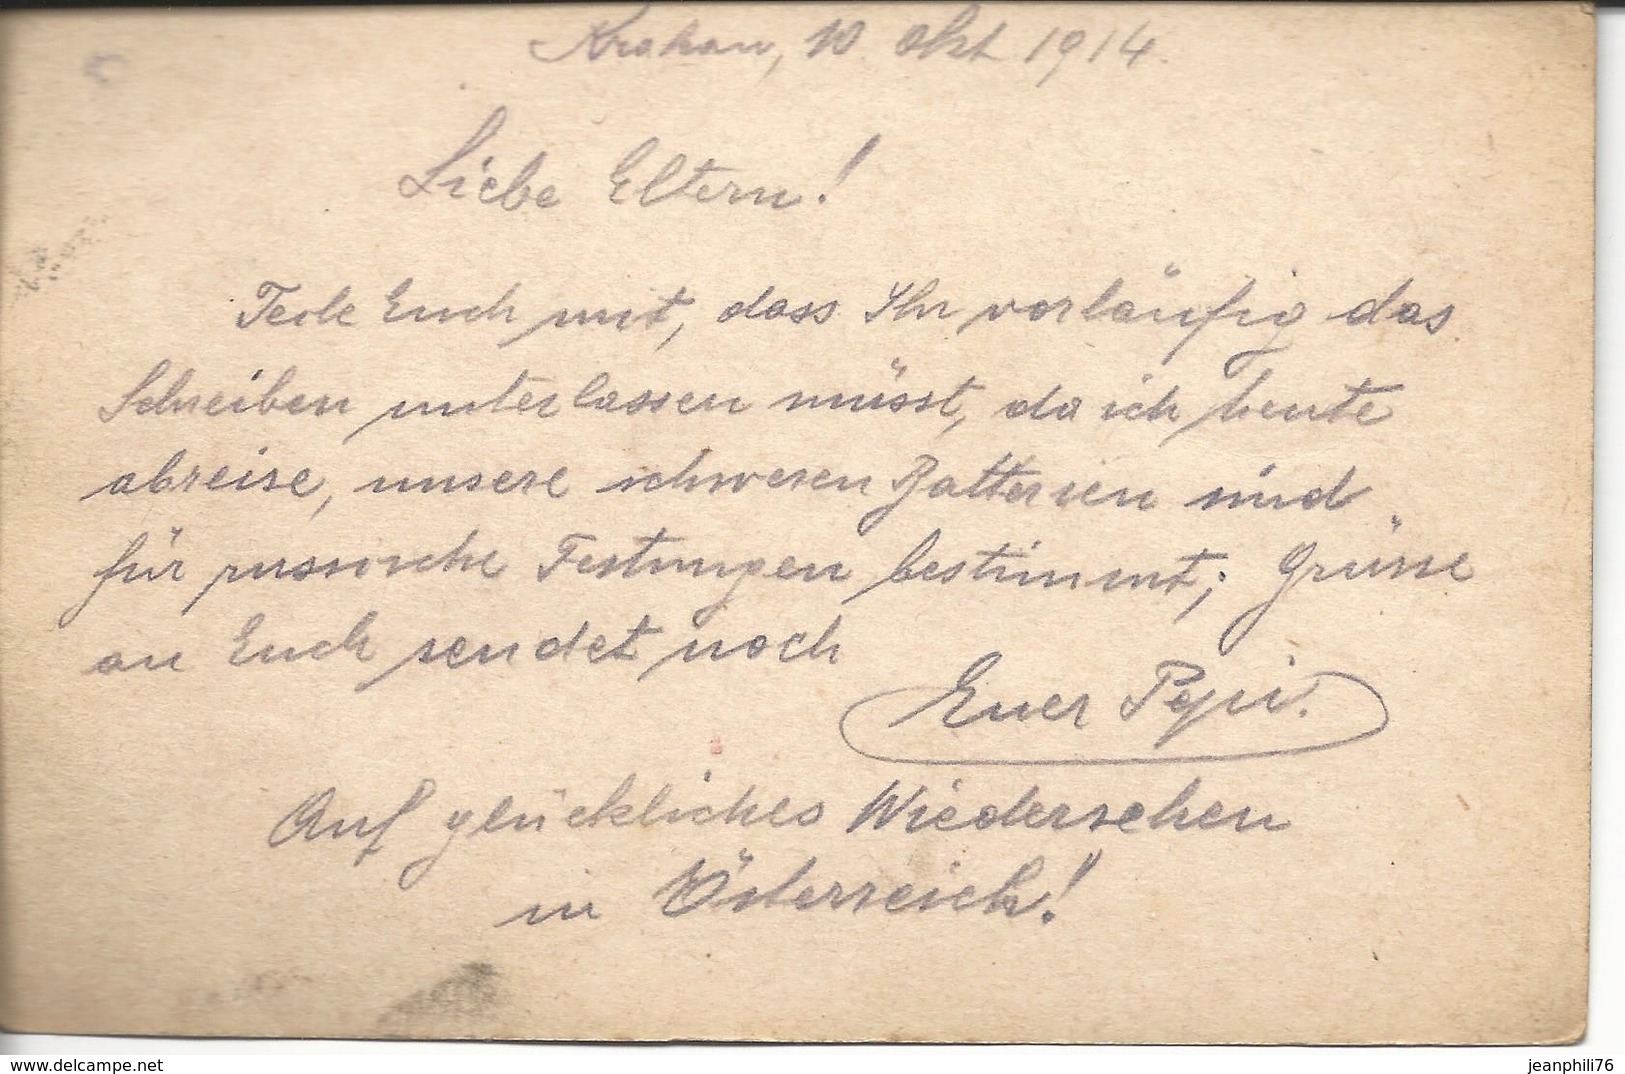 Krakau, 10. Okt 1914.
Liebe Eltern!
Teile Euch mit, dass Ihr vorläufig das
Schreiben unterlassen müsst, da ich heute
abreise, unsere schweren Batterien sind
für russische Festungen bestimmt; Grüsse
an Euch sendet noch
Euer Pepi.
Auf glückliches Wiedersehen
in Österreich!
jeanphili76